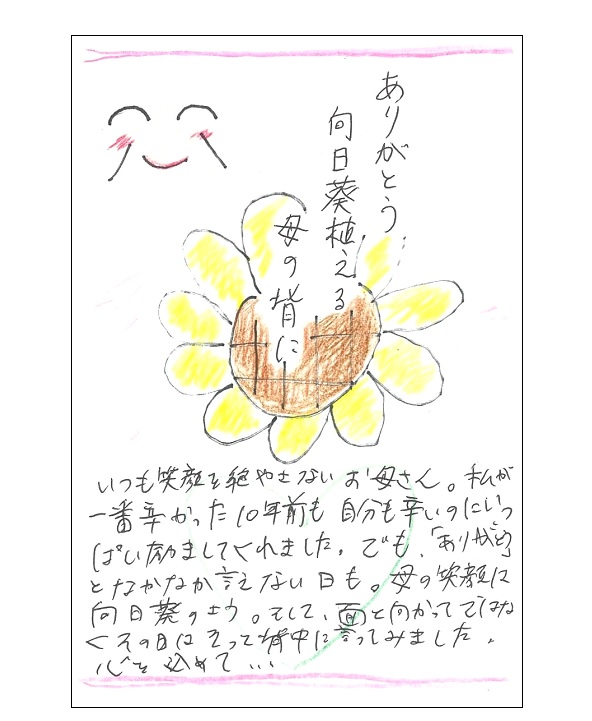 ありがとう
向日葵植える
母の背に
いつも笑顔を絶やさないお母さん。私が
一番辛かった10年前も自分も辛いのにいっ
ぱい励ましてくれました。でも、「ありがとう」
となかなか言えない日も。母の笑顔は
向日葵のよう。そして、面と向かってではな
くその日はそって背中に言ってみました。
心を込めて...